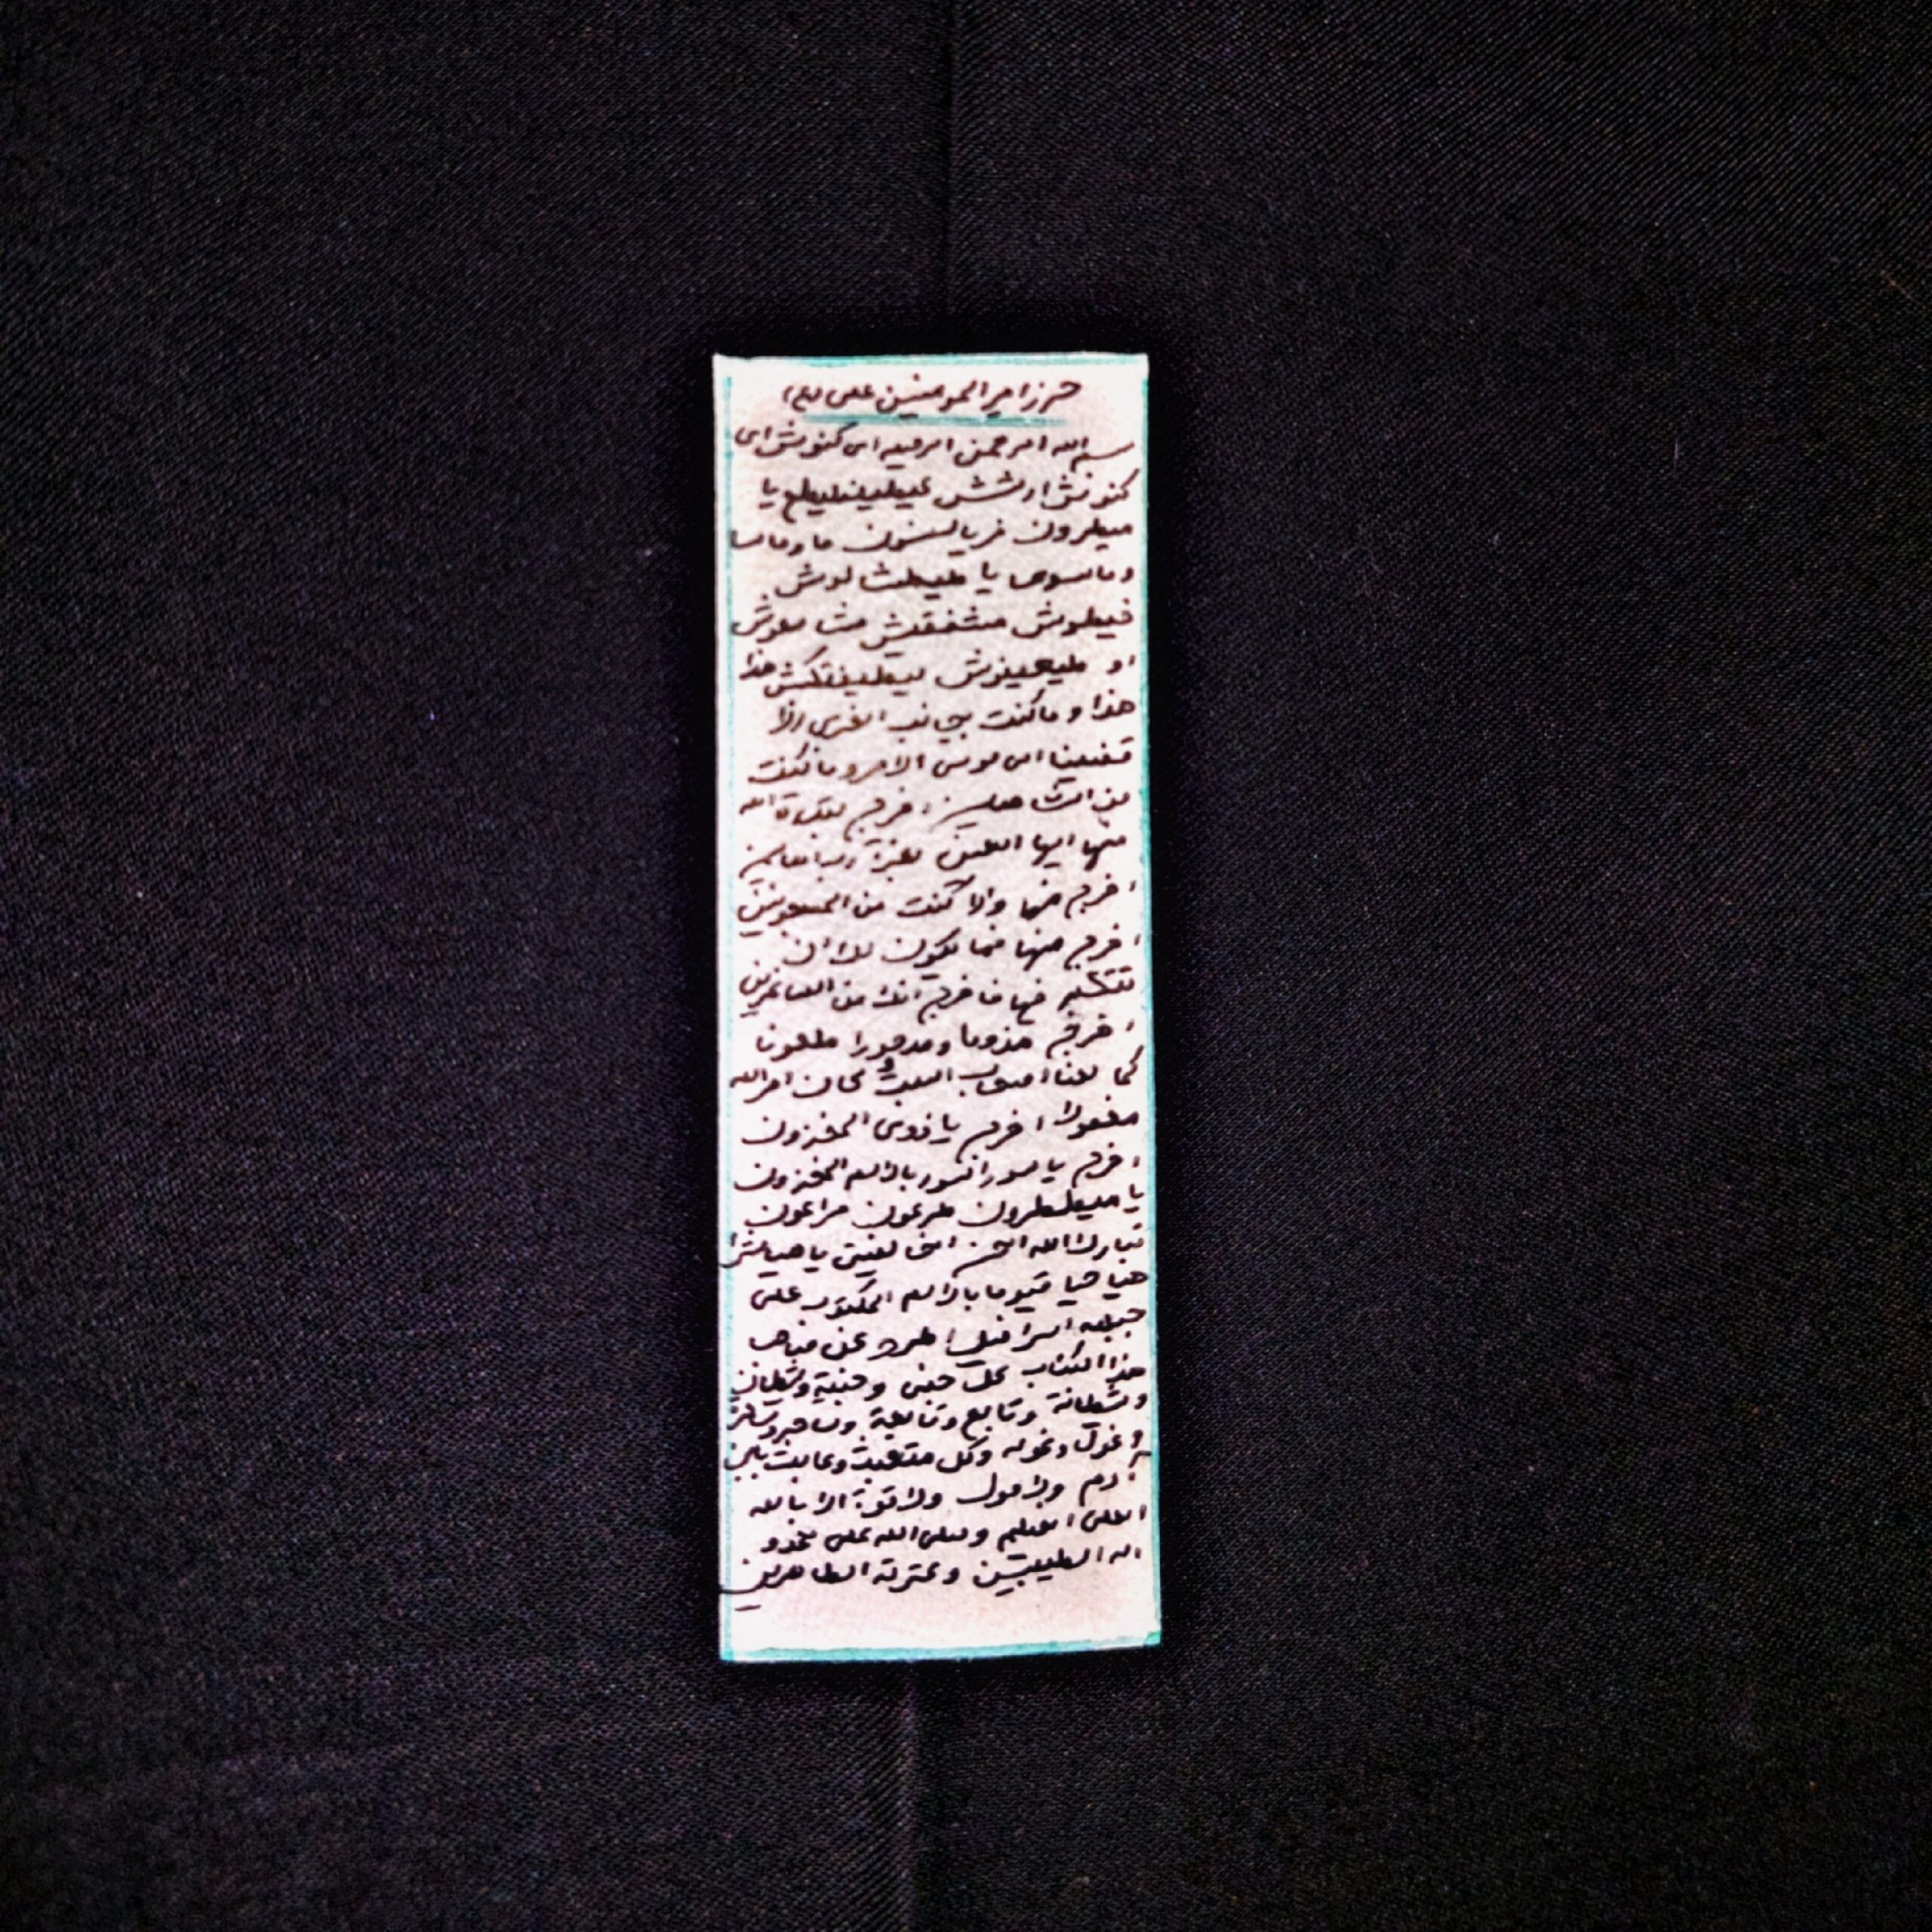 حرز امیر المومنین علی (ع)
بسم الله الرحمن الرحیم ای کنوش ای
کنوش ارشش عطیطینطیطح یا
میطرون فریالسنون ما وما سا
وما سوما یا طیطشالوش
خیطوش مشفقیش مشاصعوش
او طیعینوش لیطیفتکش هذا
هذا وما کنت بجانب الغربی اذ
قضینا الی موسی الامر و ما کنت
من الشاهدین اخرج بقدرة الله
منها ایها اللعین بعزة رب العالمین
اخرج منها والا کنت من المسجونین
اخرج منها فما یکون لک ان
تتکبر فیها فاخرج انک من الصاغرین
اخرج مذوما و مدحورا ملعونا
کما لعنا اصحاب السبت و کان امر الله
مفعولا اخرج یا ذوی المخزون
اخرج یا سوراسور بالاسم المخزون
یا میططرون طرعون مراعون
تبارک الله احسن الخالقین یا هیا شرا
هیا حیا قیوما بالاسم المکتوب علی
جبهة اسرافیل اطرد عن صاحب
هذا الکتاب کل جنی و جنیة و شیطان
و شیطانة و تابع و تابعة و ساحر و ساحرة
و غول و غوله و کل متعبث و عابث بابن
آدم ولا حول ولا قوة الا بالله
العلی العظیم و صلی الله علی محمد و
اله الطیبین و عترته الطاهرین